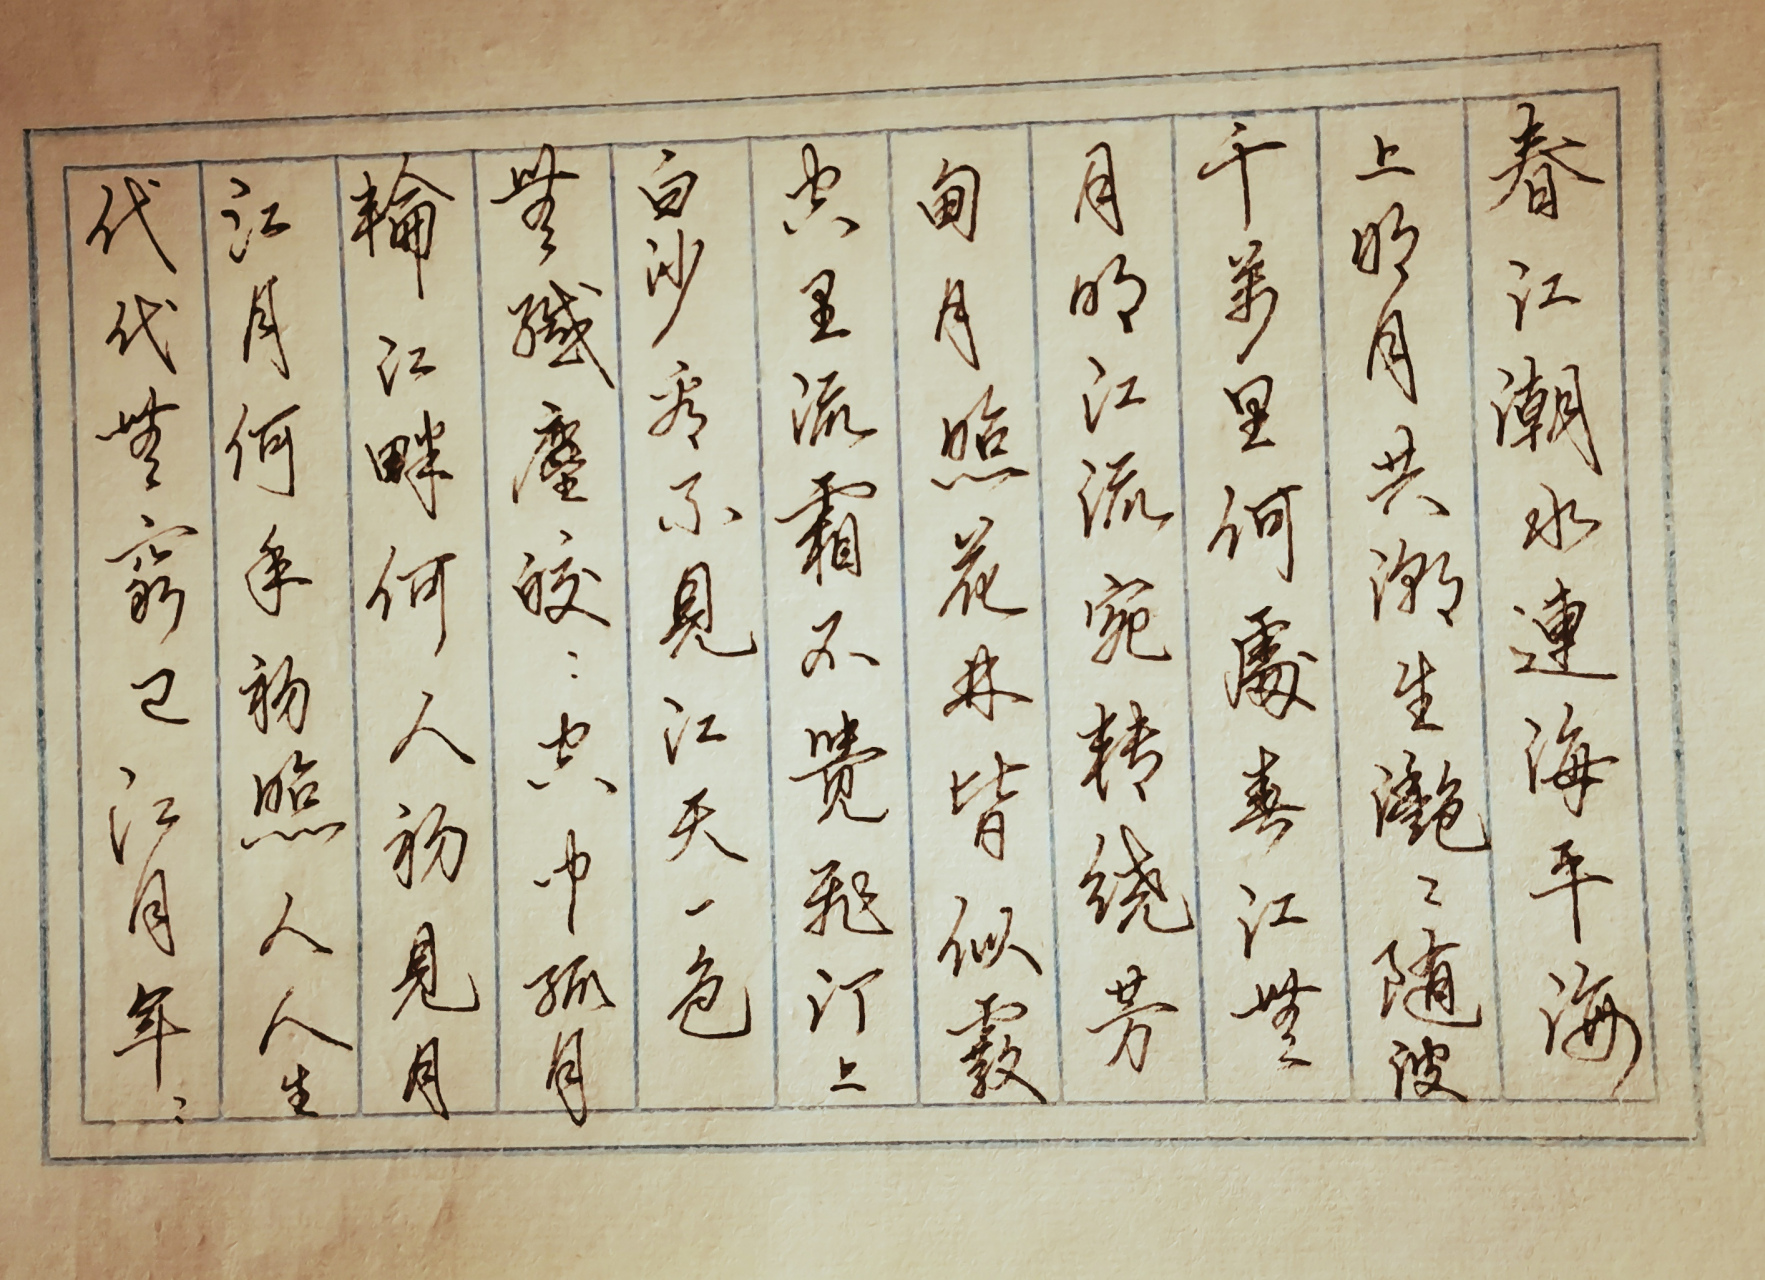 春江潮水連海平海
上明月共潮生灩〻随波
千萬里何處春江無
月明江流宛轉繞芳
甸月照花林皆似霰
空里流霜不覺飛汀上
白沙看不見江天一色
無纖塵皎〻空中孤月
輪江畔何人初見月
江月何年初照人人生
代代無窮已江月年〻